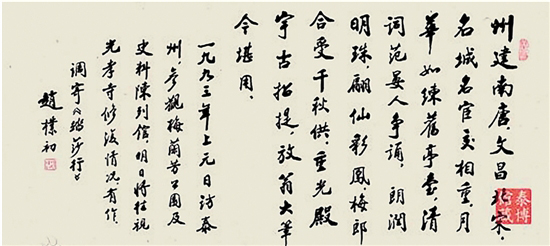 州建南唐,文昌北宋,
名城名宦交相重。月
華如練舊亭臺,清
词范晏人争诵。朗润
明珠,翩仙彩鳳,梅郎
合受千秋供。重光殿
宇古招提,放翁大筆
今堪用。
一九九三年上元日訪泰
州,參觀梅蘭芳公園及
史料陳列館,明日將往視
光孝寺修復情况,有作,
调寄《踏莎行》
趙樸初
泰博
館藏